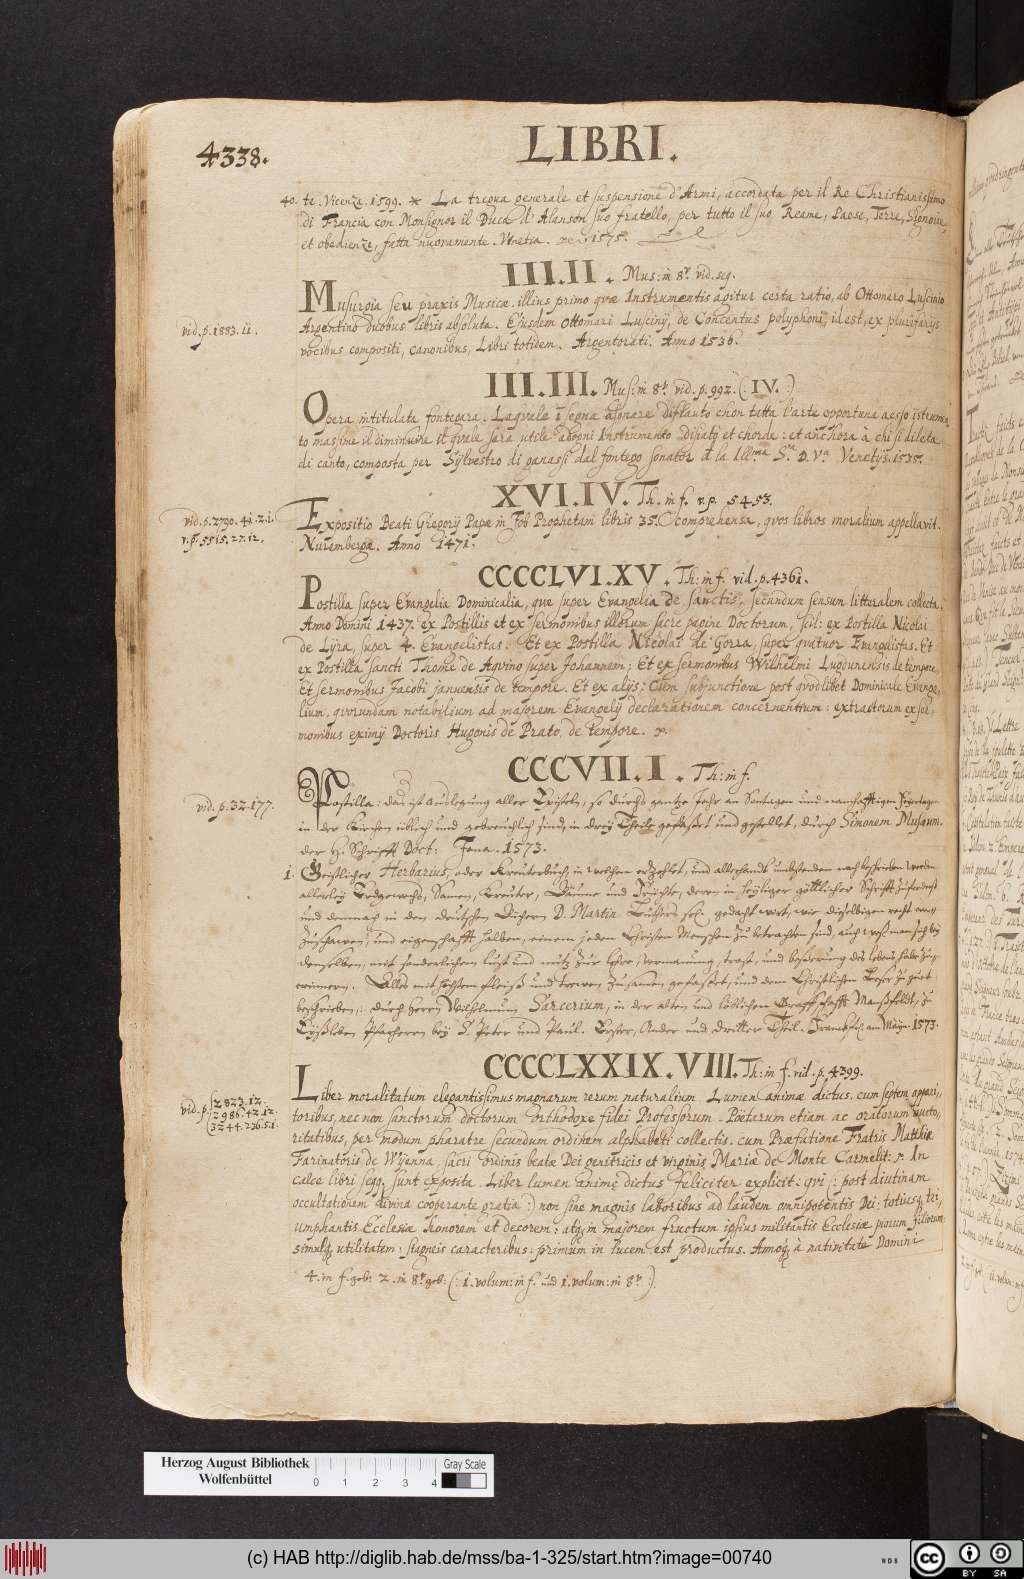 4338.
LIBRI.
40. te. Vicenza. 1599. * La tregua generale et suspensione d'Armi, accordata per il Re Christianissimo
di Francia con Monsignor il Duca d'Alanson suo fratello, per tutto il suo Reame, Paese, Terre, Signorie,
et obedienze, fatta nuovamente. Venetia. 1575.
III.II. Mus: in 8º. vid. seq.
Musurgia seu praxis Musicæ. illius primo quæ Instrumentis agitur certa ratio, ab Ottomaro Luscinio
vid. p. 1883. 11.
Argentino duobus libris absoluta. Ejusdem Ottomari Luscinij, de Concentus polyphoni, id est, ex plurifarijs
vocibus compositi, canonibus, Libri totidem. Argentorati. Anno 1536.
III.III. Mus: in 8º. vid. p. 992. (: IV. :)
Opera intitulata fontegara. Laquale i segna a sonare di flauto chon tutta l'arte opportuna a esso istrumen
to massime il diminuire il quale sara utile ad ogni Instrumento di fiato et chorde: et anchora à chi si dileta
di canto, composta per Sylvestro di ganassi dal fontego sonator d. la Ill.ma S.ria D. V.a Venetijs. 1535.
XVI.IV. Th. in f. v. p. 5453.
vid. p. 2790. 41. 2. 1.
v. p. 5515. 27. 12.
Expositio Beati Gregorij Papæ in Job Prophetam libris 35. comprehensa, quos libros moralium appellavit.
Nurembergæ. Anno 1471.
CCCCLVI.XV. Th: in f. vid. p. 4361.
Postilla super Evangelia Dominicalia, que super Evangelia de sanctis, secundum sensum litteralem collecta.
Anno Domini 1437. ex Postillis et ex sermonibus illorum sacre pagine Doctorum, scil: ex Postilla Nicolai
de Lyra, super 4. Evangelistas. Et ex Postilla Nicolai de Gorra, super quatuor Evangelistas. Et
ex Postilla sancti Thome de Aqvino super Johannem; Et ex sermonibus Wilhelmi Lugdunensis de tempore.
Et sermonibus Jacobi januensis de tempore. Et ex alijs: Cum subjunctione post qvodlibet Dominicale Evange-
lium, qvorundam notabilium ad majorem Evangelij declarationem concernentium: extractorum ex ser-
monibus eximij Doctoris Hugonis de Prato, de tempore.
CCCVII.I. Th: in f.
vid. p. 32. 177.
Postilla: das ist Auslegung aller Episteln, so durchs gantze Jahr an Sontagen und nambhafftigen Feyertagen
in der Kirchen üblich und gebreuchlich sind, in drey Theile gefasset und gestellet, durch Simonem Musæum.
der H. Schrifft Doct: Jena. 1573.
1. Geistlicher Herbarius, oder Kreuterbuch, in welchem erzehlet, und allerhandt umbstenden nach beschrieben werden
allerley Erdgewechs, Samen, Kreuter, Bäume und Früchte, deren in heyliger göttlicher Schrifft
und demnach in den deutschen Büchern D. Martin Luthers sel. gedacht wirt, wie dieselbigen recht
Zuschawen, und eigenschafft halben, einem jedem Christen Menschen Zu betrachten sind, auch
denselben, mit sonderlichem lust und nutz Zur Lehre, Vermanung, trost, und besserung des lebens
erinnern. Alles mit höchstem fleiß und trewen Zusamen gefasset, und dem Christlichen Leser
beschrieben,: durch Herrn Wilhelmum Sarcerium, in der alten und löblichen Graffschafft Manßfeldt,
Eyßleben Pfarherrn bey S. Peter und Paul. Erster, Ander und dritter Theil. Franckf. am Mayn. 1573.
CCCCLXXIX.VIII. Th: in f. vid. p. 4399.
vid. p. 2823. 12.
2986. 42. 12.
3244. 236. 5. 1.
Liber moralitatum elegantissimus magnarum rerum naturalium Lumen animæ dictus. cum septem appari-
toribus, nec non sanctorum doctorum orthodoxe fidei Professorum. Poëtarum etiam ac oratorum aucto-
ritatibus, per modum pharatre secundum ordinem alphabeti collectis. cum Præfatione Fratris Matthiæ
Farinatoris de Wyenna, sacri ordinis beatæ Dei genitricis et virginis Mariæ de Monte Carmeli: In
calce libri seqq. sunt exposita. Liber lumen anime dictus feliciter explicit: qvi (: post diutinam
occultationem divina cooperante gratia :) non sine magnis laboribus ad laudem omnipotentis Dei: totiusq. tri,
umphantis Ecclesiæ honorem et decorem: atq. in majorem fructum ipsius militantis Ecclesiæ piorum filiorum:
simulq. utilitatem: stagneis caracteribus. primum in lucem est productus. Annoq. à nativitate Domini
4. in f. geb: 2. in 8º. geb: (: 1. volum: in f. und 1. volum: in 8º. :)
Herzog August Bibliothek
Wolfenbüttel
0 1 2 3 4
Gray Scale
(c) HAB http://diglib.hab.de/mss/ba-1-325/start.htm?image=00740
WDB
cc BY SA